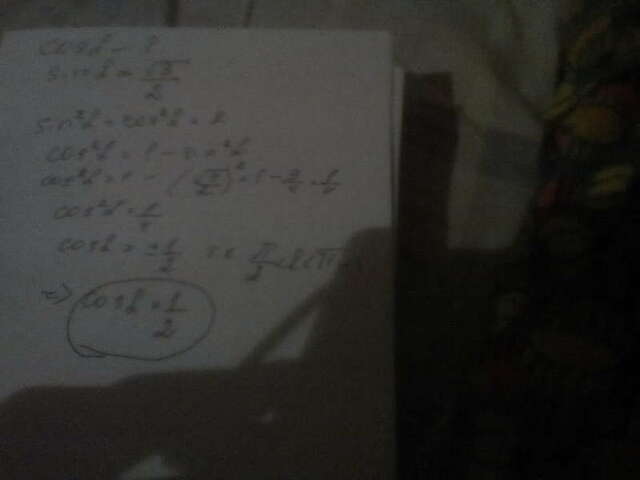 cosα - ?
sinα = √3/2
sin²α + cos²α = 1
cos²α = 1 - sin²α
cos²α = 1 - (√3/2)² = 1 - 3/4 = 1/4
cos²α = 1/4
cosα = ±1/2 π/2 < α < π
cosα = 1/2